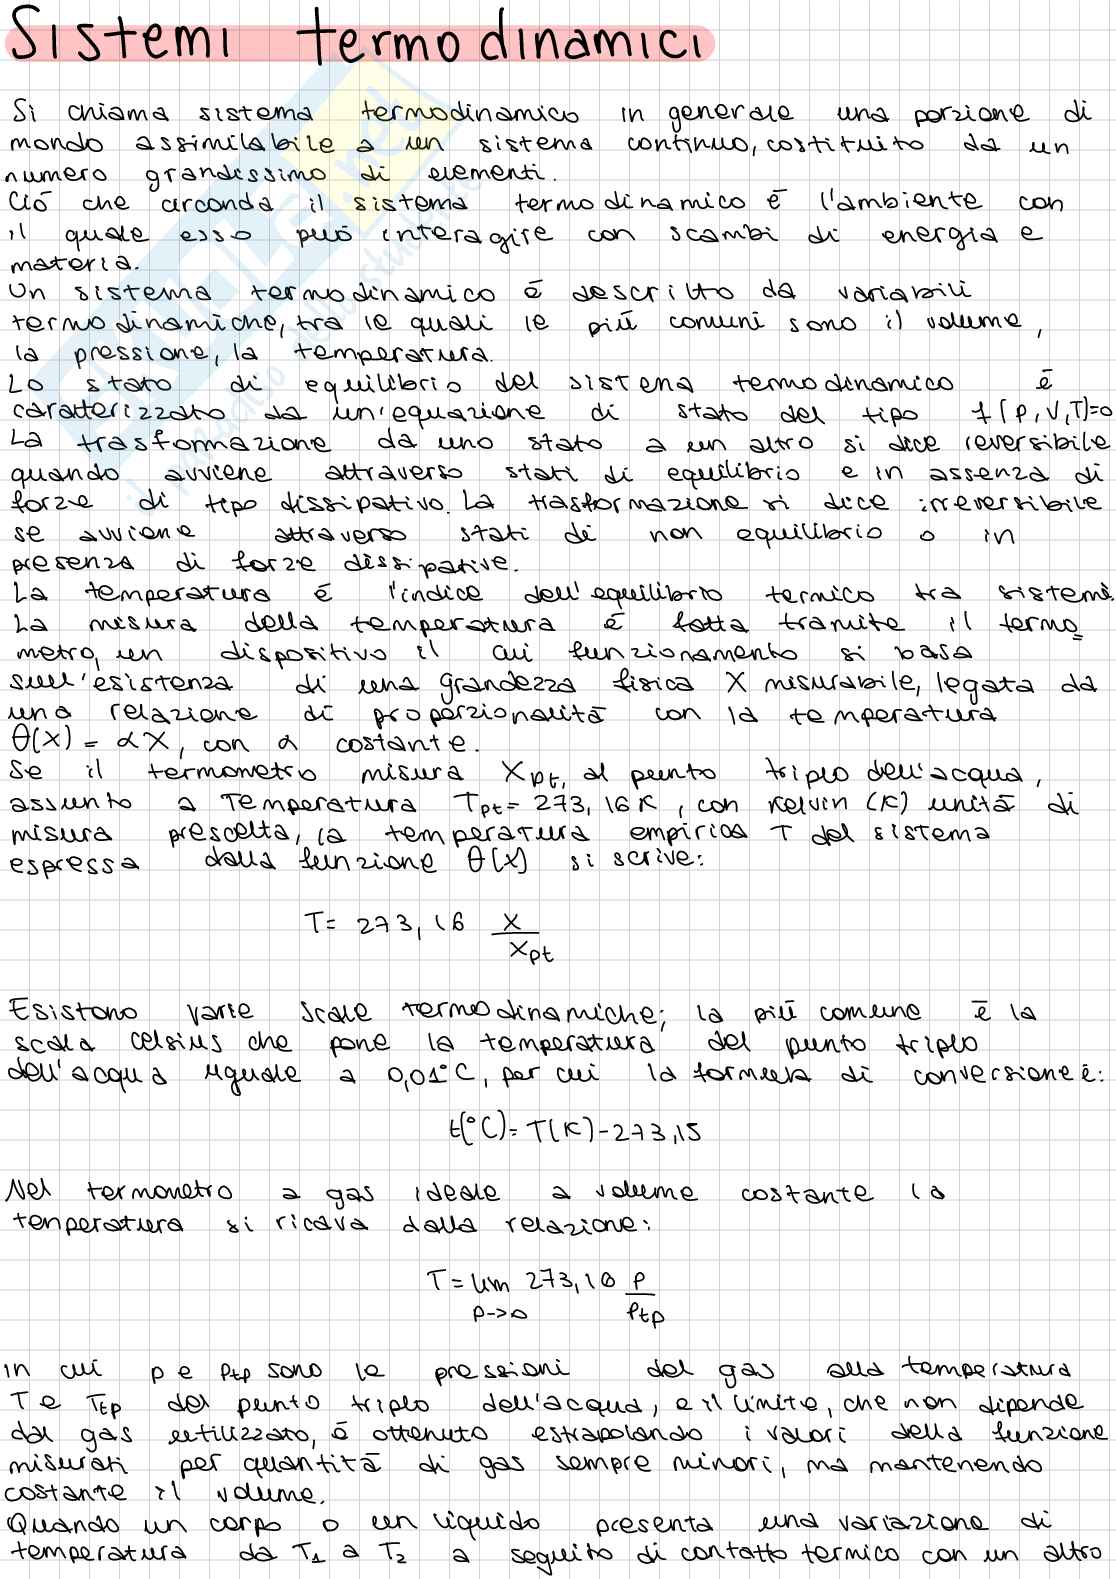 Sistemi termodinamici
Si chiama sistema termodinamico in generale una porzione di
mondo assimilabile a un sistema continuo, costituito da un
numero grandissimo di elementi.
Ciō che circonda il sistema termodinamico ē l'ambiente con
il quale esso può interagire con scambi di energia e
materia.
Un sistema termodinamico ē descritto da variabili
termodinamiche, tra le quali le più comuni sono il volume,
la pressione, la temperatura.
Lo stato di equilibrio del sistema termodinamico ē
caratterizzato da un'equazione di stato del tipo f(p,V,T)=0
La trasformazione da uno stato a un altro si dice reversibile
quando avviene attraverso stati di equilibrio e in assenza di
forze di tipo dissipativo. La trasformazione si dice irreversibile
se avviene attraverso stati di non equilibrio o in
presenza di forze dissipative.
La temperatura ē l'indice dell'equilibrio termico tra sistemi.
La misura della temperatura ē fatta tramite il termo=
metro, un dispositivo il cui funzionamento si basa
sull'esistenza di una grandezza fisica X misurabile, legata da
una relazione di proporzionalitā con la temperatura
θ(X) = αX, con α costante.
Se il termometro misura Xpt, al punto triplo dell'acqua,
assunto a Temperatura Tpt= 273,16K, con Kelvin (K) unitā di
misura prescelta, la temperatura empirica T del sistema
espressa dalla funzione θ(X) si scrive:
T= 273,16 X/Xpt
Esistono varie scale termodinamiche; la piū comune ē la
scala Celsius che pone la temperatura del punto triplo
dell'acqua uguale a 0,01°C, per cui la formula di conversione è:
t(°C)= T(K)-273,15
Nel termometro a gas ideale a volume costante la
temperatura si ricava dalla relazione:
T= lim 273,16 p/ptp
p->0
in cui p e ptp sono le pressioni del gas alla temperatura
T e Ttp del punto triplo dell'acqua, e il limite, che non dipende
dal gas utilizzato, ē ottenuto estrapolando i valori della funzione
misurati per quantitā di gas sempre minori, ma mantenendo
costante il volume.
Quando un corpo o un liquido presenta una variazione di
temperatura da T1 a T2 a seguito di contatto termico con un altro